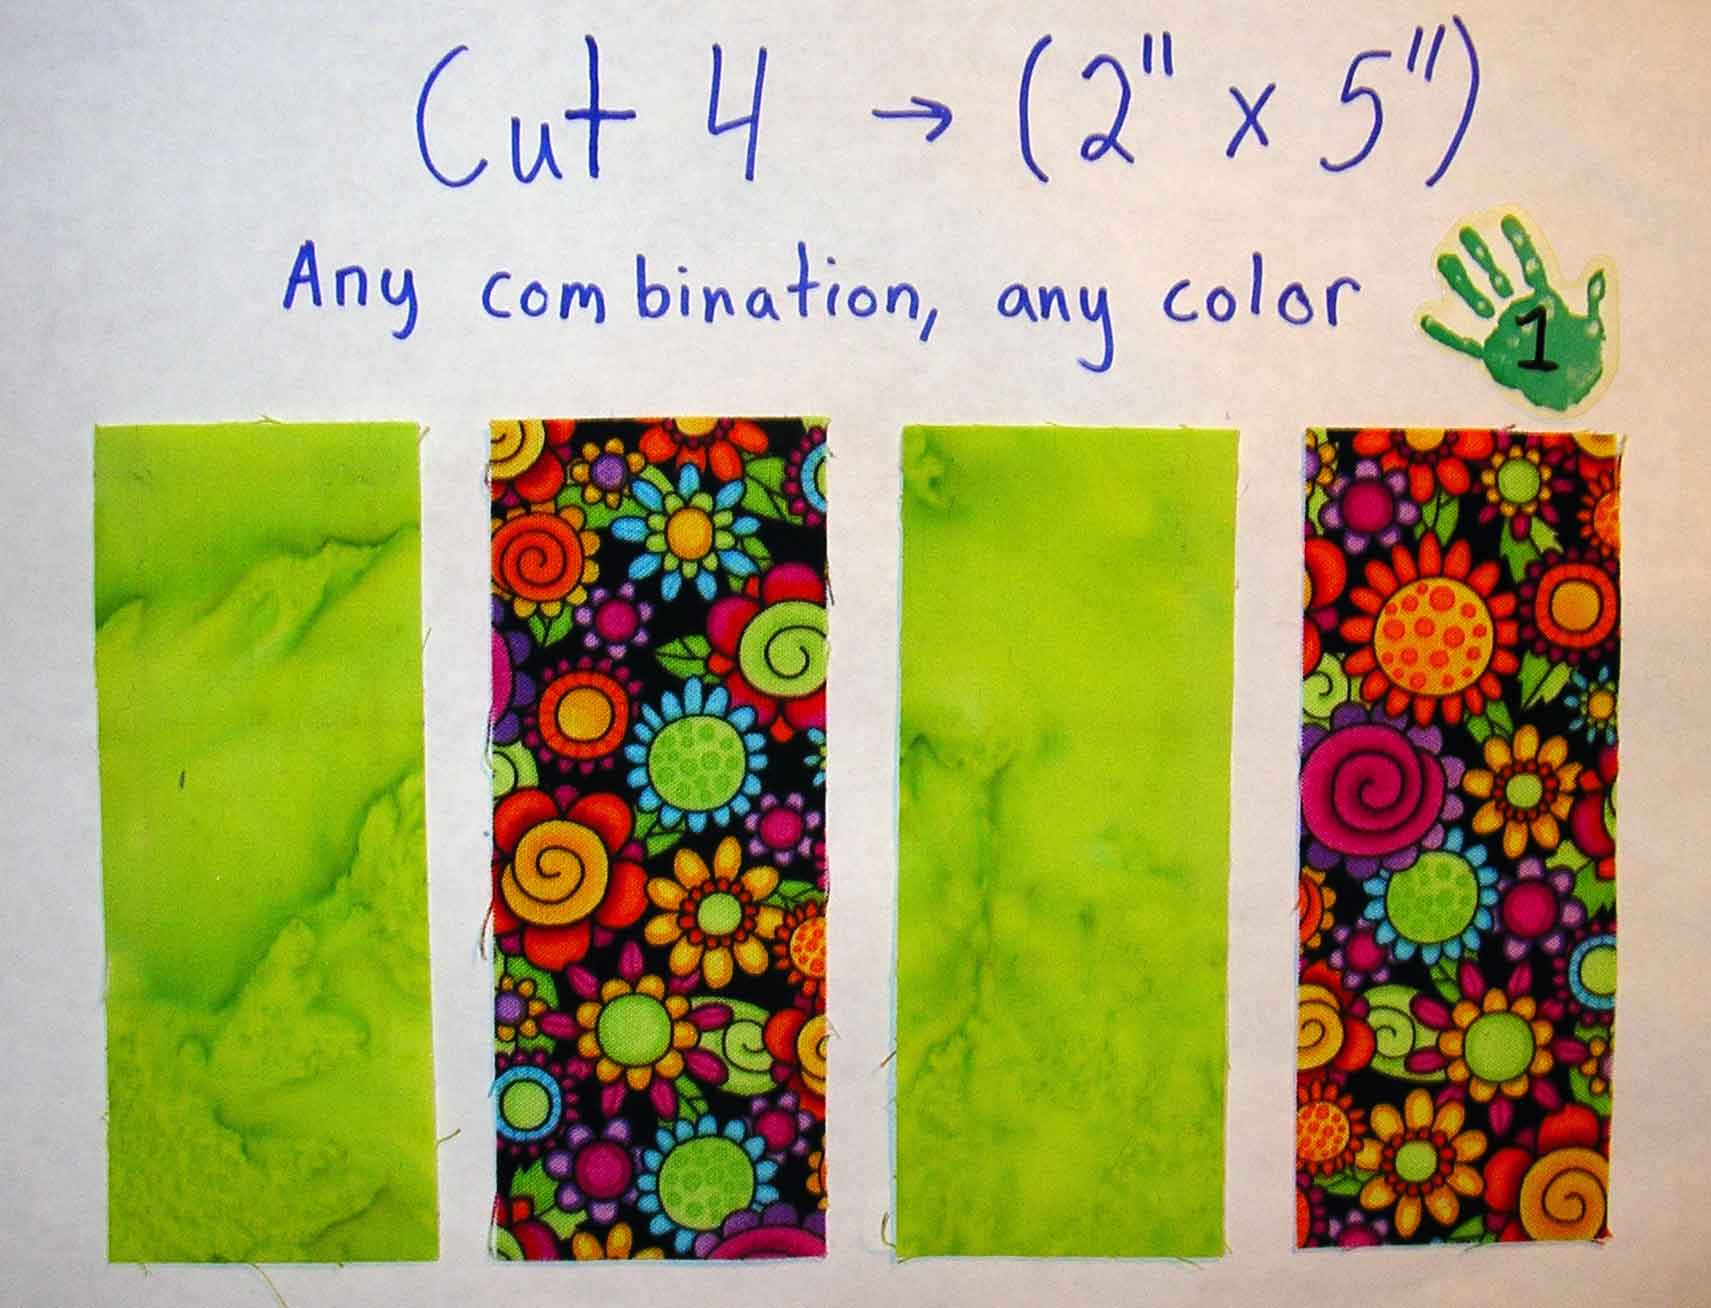 Cut 4 → (2" x 5")
Any combination, any color
1